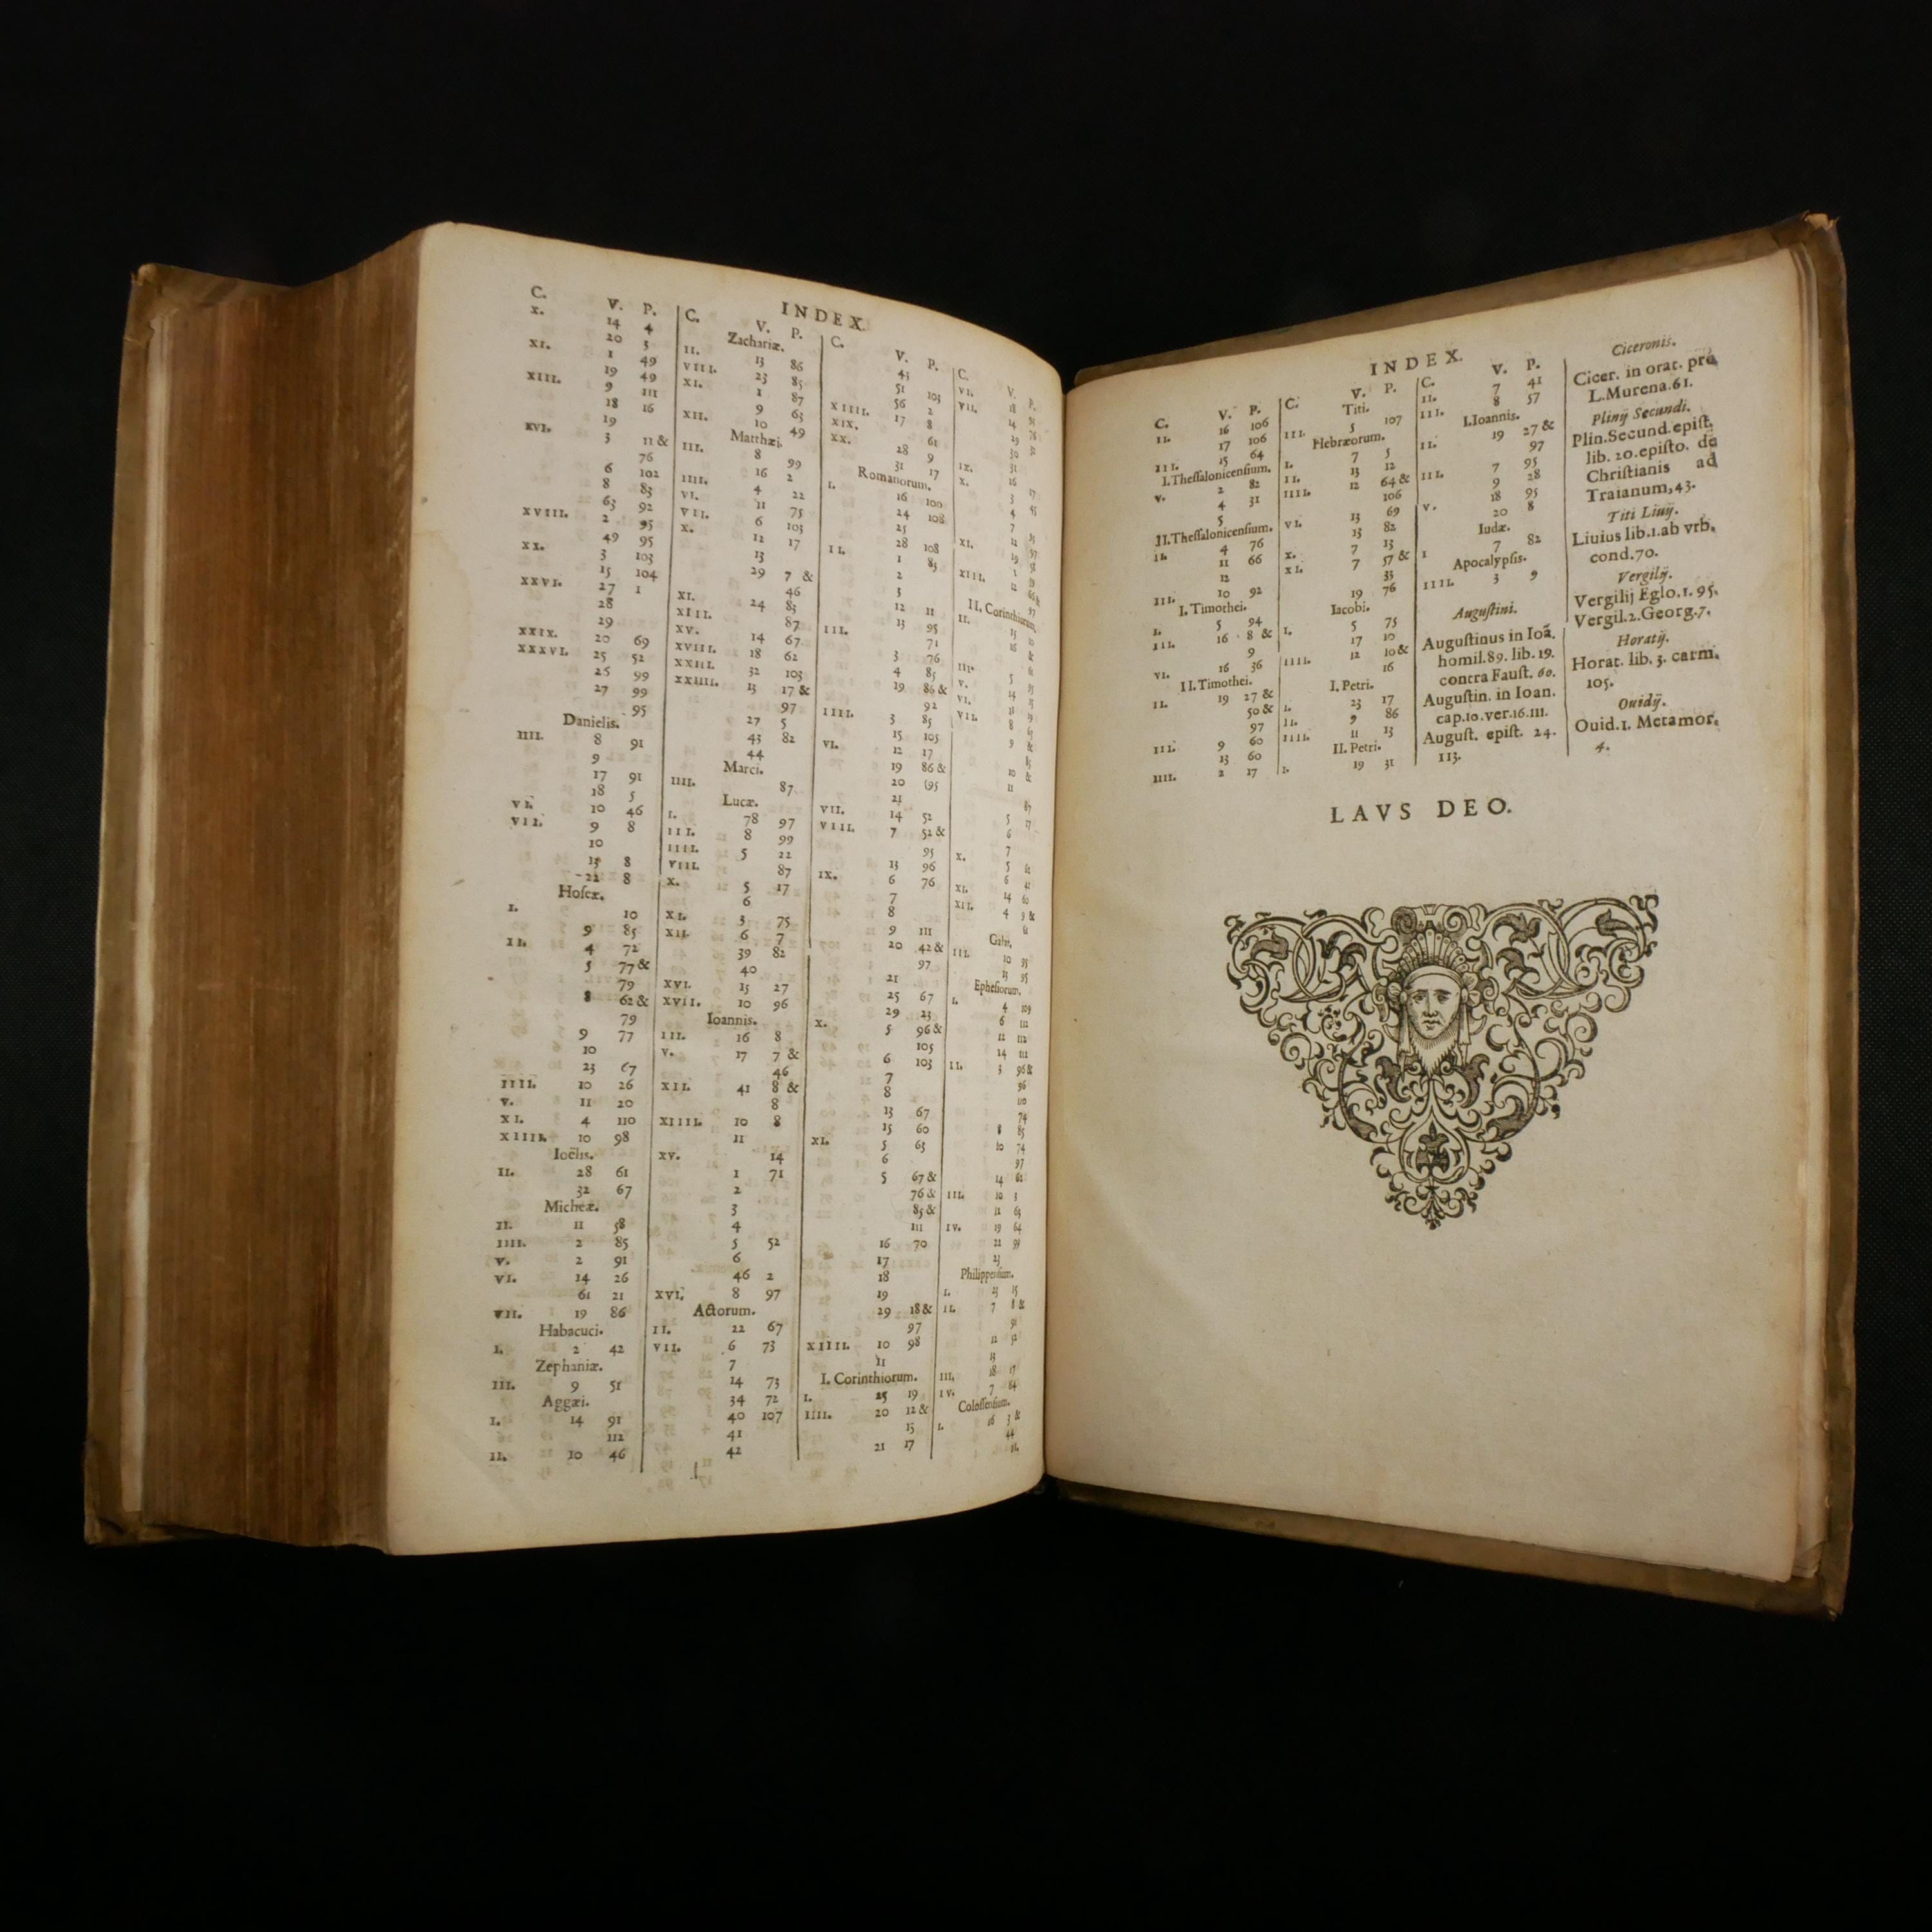 INDEX.
C. V. P.
X. 14 4
20 3
XI. 1 49
19 49
XIII. 9 111
18 16
19
XVI. 3 11 &
76
6 102
8 83
63 92
XVIII. 2 95
49 95
XX. 3 103
15 104
XXVI. 27 1
28
29
XXIX. 20 69
XXXVI. 25 52
26 99
27 99
95
Danielis.
IIII. 8 91
9
17 91
18 5
VI. 10 46
VII. 9 8
10
13 8
22 8
Hoseæ.
I. 10
9 85
II. 4 72
5 77 &
79
8 62 &
79
9 77
10
23 67
IIII. 10 26
V. 11 20
XI. 4 110
XIIII. 10 98
Ioëlis.
II. 28 61
32 67
Micheæ.
II. 11 58
IIII. 2 85
V. 2 91
VI. 14 26
61 21
VII. 19 86
Habacuci.
I. 2 42
Zephaniæ.
III. 9 51
Aggæi.
I. 14 91
112
II. 10 46
C. V. P.
Zachariæ.
II. 13 86
VIII. 23 85
XI. 1 87
9 63
XII. 10 49
Matthæi.
III. 8 99
16 2
IIII. 4 22
VI. 11 75
VII. 6 103
X. 12 17
13
29 7 &
46
XI. 24 83
XIII. 87
XV. 14 67
XVIII. 18 62
XXIII. 32 103
XXIIII. 13 17 &
97
27 5
43 82
44
Marci.
IIII. 87
Lucæ.
I. 78 97
III. 8 99
IIII. 5 22
VIII. 87
X. 5 17
6
XI. 3 75
XII. 6 7
39 82
40
XVI. 15 27
XVII. 10 96
Ioannis.
III. 16 8
V. 17 7 &
46
XII. 41 8 &
8
XIIII. 10 8
11
XV. 14
1 71
2
3
4
5 52
6
46 2
XVI. 8 97
Actorum.
II. 22 67
VII. 6 73
7
14 73
34 72
40 107
41
42
C. V. P.
43
51 103
56 2
XIIII. 17 8
XIX. 61
XX. 28 9
31 17
Romanorum.
I. 16 100
24 108
25
28 108
II. 1 85
2
3
12 11
III. 13 95
71
3 76
4 85
19 86 &
92
IIII. 3 85
15 105
VI. 12 17
19 86 &
20 95
21
VII. 14 52
VIII. 7 52 &
95
13 96
IX. 6 76
7
8
9 111
20 42 &
97
21
25 67
29 23
X. 5 96 &
105
6 103
7
8
13 67
15 60
XI. 5 63
6
5 67 &
76 &
85 &
111
16 70
17
18
19
29 18 &
97
XIIII. 10 98
11
I. Corinthiorum.
I. 25 19
IIII. 20 12 &
15
21 17
C. V. P.
VI.
VII.
IX.
X.
XI.
XIII.
II. Corinthiorum.
II.
III.
V.
VI.
VII.
X.
XI.
XII.
Galat.
III.
Ephesiorum.
I. 4 109
6 112
12 112
14 111
II. 3 96 &
96
110
74
8 85
10 74
97
14 62
III. 10 3
11 63
IV. 19 64
22 99
23
Philippensium.
I. 23 15
II. 7 8 &
III. 18 17
IV. 7 64
Colossensium.
I. 16 3 &
INDEX.
C. V. P.
II. 16 106
17 106
III. 15 64
I. Thessalonicensium.
V. 2 82
4 31
5
II. Thessalonicensium.
II. 4 76
11 66
12
III. 10 92
I. Timothei.
I. 5 94
III. 16 8 &
9
VI. 16 36
II. Timothei.
II. 19 27 &
50 &
97
III. 9 60
13 60
IIII. 2 17
C. V. P.
Titi.
III. 5 107
Hebræorum.
I. 7 5
II. 13 12
IIII. 12 64 &
106
VI. 13 69
13 82
X. 7 13
XI. 7 57 &
33
19 76
Iacobi.
I. 5 75
17 10
IIII. 12 10 &
16
I. Petri.
I. 23 17
II. 9 86
IIII. 11 13
II. Petri.
I. 19 31
C. V. P.
II. 7 41
III. 8 57
I. Ioannis.
II. 19 27 &
97
III. 7 95
9 28
V. 18 95
20 8
Iudæ.
I 7 82
Apocalypsis.
IIII. 3 9
Augustini.
Augustinus in Ioã.
homil.89. lib. 19.
contra Faust. 60.
Augustin. in Ioan.
cap.10.ver.16.111.
August. epist. 24.
113.
Ciceronis.
Cicer. in orat. pro
L.Murena.61.
Plinij Secundi.
Plin.Secund.epist.
lib. 10.episto. de
Christianis ad
Traianum,43.
Titi Liuij.
Liuius lib.1.ab vrb.
cond.70.
Vergilij.
Vergilij Eglo.1.95.
Vergil.2.Georg.7.
Horatij.
Horat. lib. 3. carm.
105.
Ouidij.
Ouid.1. Metamor.
4.
LAVS DEO.